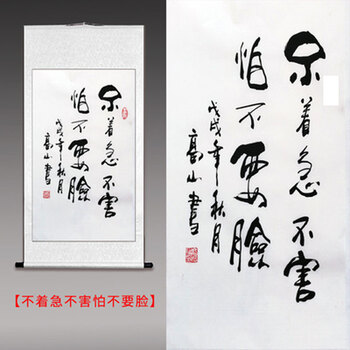 不着急不害
怕不要臉
戊戌年秋月
高山書
【不着急不害怕不要脸】
不着急不害
怕不要臉
戊戌年秋月
高山書